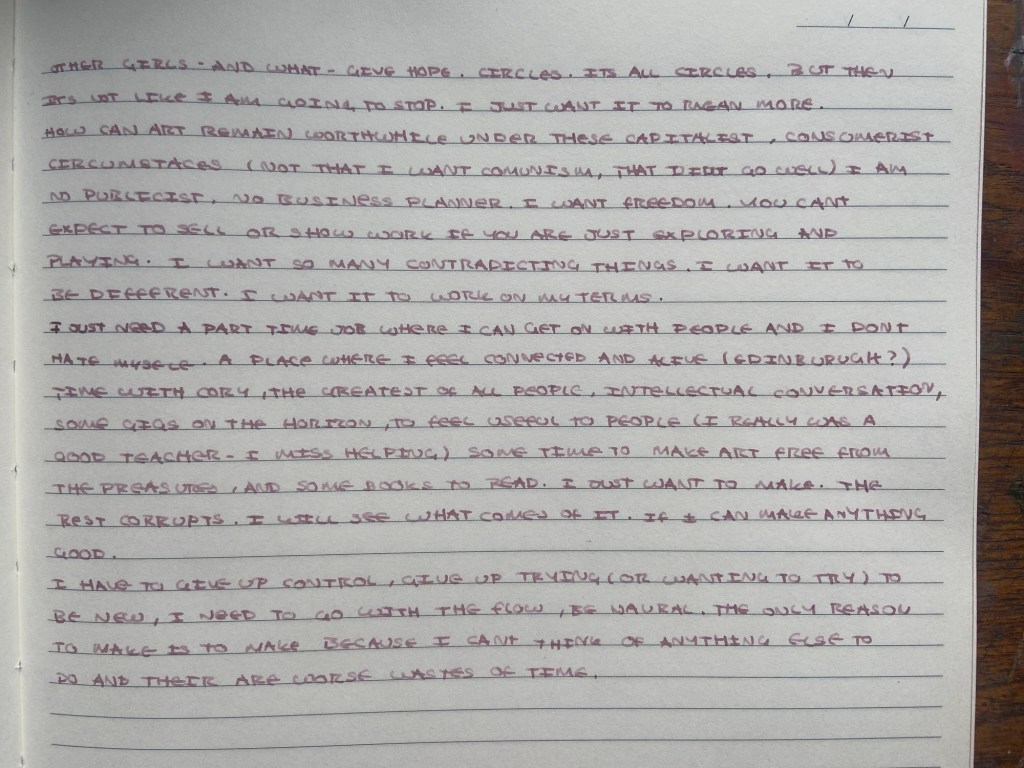 OTHER GIRLS - AND WHAT - GIVE HOPE. CIRCLES. ITS ALL CIRCLES. BUT THEN
IT'S NOT LIKE I AM GOING TO STOP. I JUST WANT IT TO MEAN MORE.
HOW CAN ART REMAIN WORTHWHILE UNDER THESE CAPITALIST, CONSUMERIST
CIRCUMSTACES (NOT THAT I WANT COMUNISM, THAT DIDNT GO WELL) I AM
NO PUBLICIST, NO BUSINESS PLANNER. I WANT FREEDOM. YOU CANT
EXPECT TO SELL OR SHOW WORK IF YOU ARE JUST EXPLORING AND
PLAYING. I WANT SO MANY CONTRADICTING THINGS. I WANT IT TO
BE DIFFERENT. I WANT IT TO WORK ON MY TERMS.
I JUST NEED A PART TIME JOB WHERE I CAN GET ON WITH PEOPLE AND I DONT
HATE MYSELF. A PLACE WHERE I FEEL CONNECTED AND ALIVE (EDINBURUGH?)
TIME WITH CORY, THE GREATEST OF ALL PEOPLE, INTELLECTUAL CONVERSATION,
SOME GIGS ON THE HORIZON, TO FEEL USEFUL TO PEOPLE (I REALLY WAS A
GOOD TEACHER - I MISS HELPING) SOME TIME TO MAKE ART FREE FROM
THE PREASURES, AND SOME BOOKS TO READ. I JUST WANT TO MAKE. THE
REST CORRUPTS. I WILL SEE WHAT COMES OF IT. IF I CAN MAKE ANYTHING
GOOD.
I HAVE TO GIVE UP CONTROL, GIVE UP TRYING (OR WANTING TO TRY) TO
BE NEW, I NEED TO GO WITH THE FLOW, BE NAURAL. THE ONLY REASON
TO MAKE IS TO MAKE BECAUSE I CANT THINK OF ANYTHING ELSE TO
DO AND THEIR ARE WORSE WASTES OF TIME.